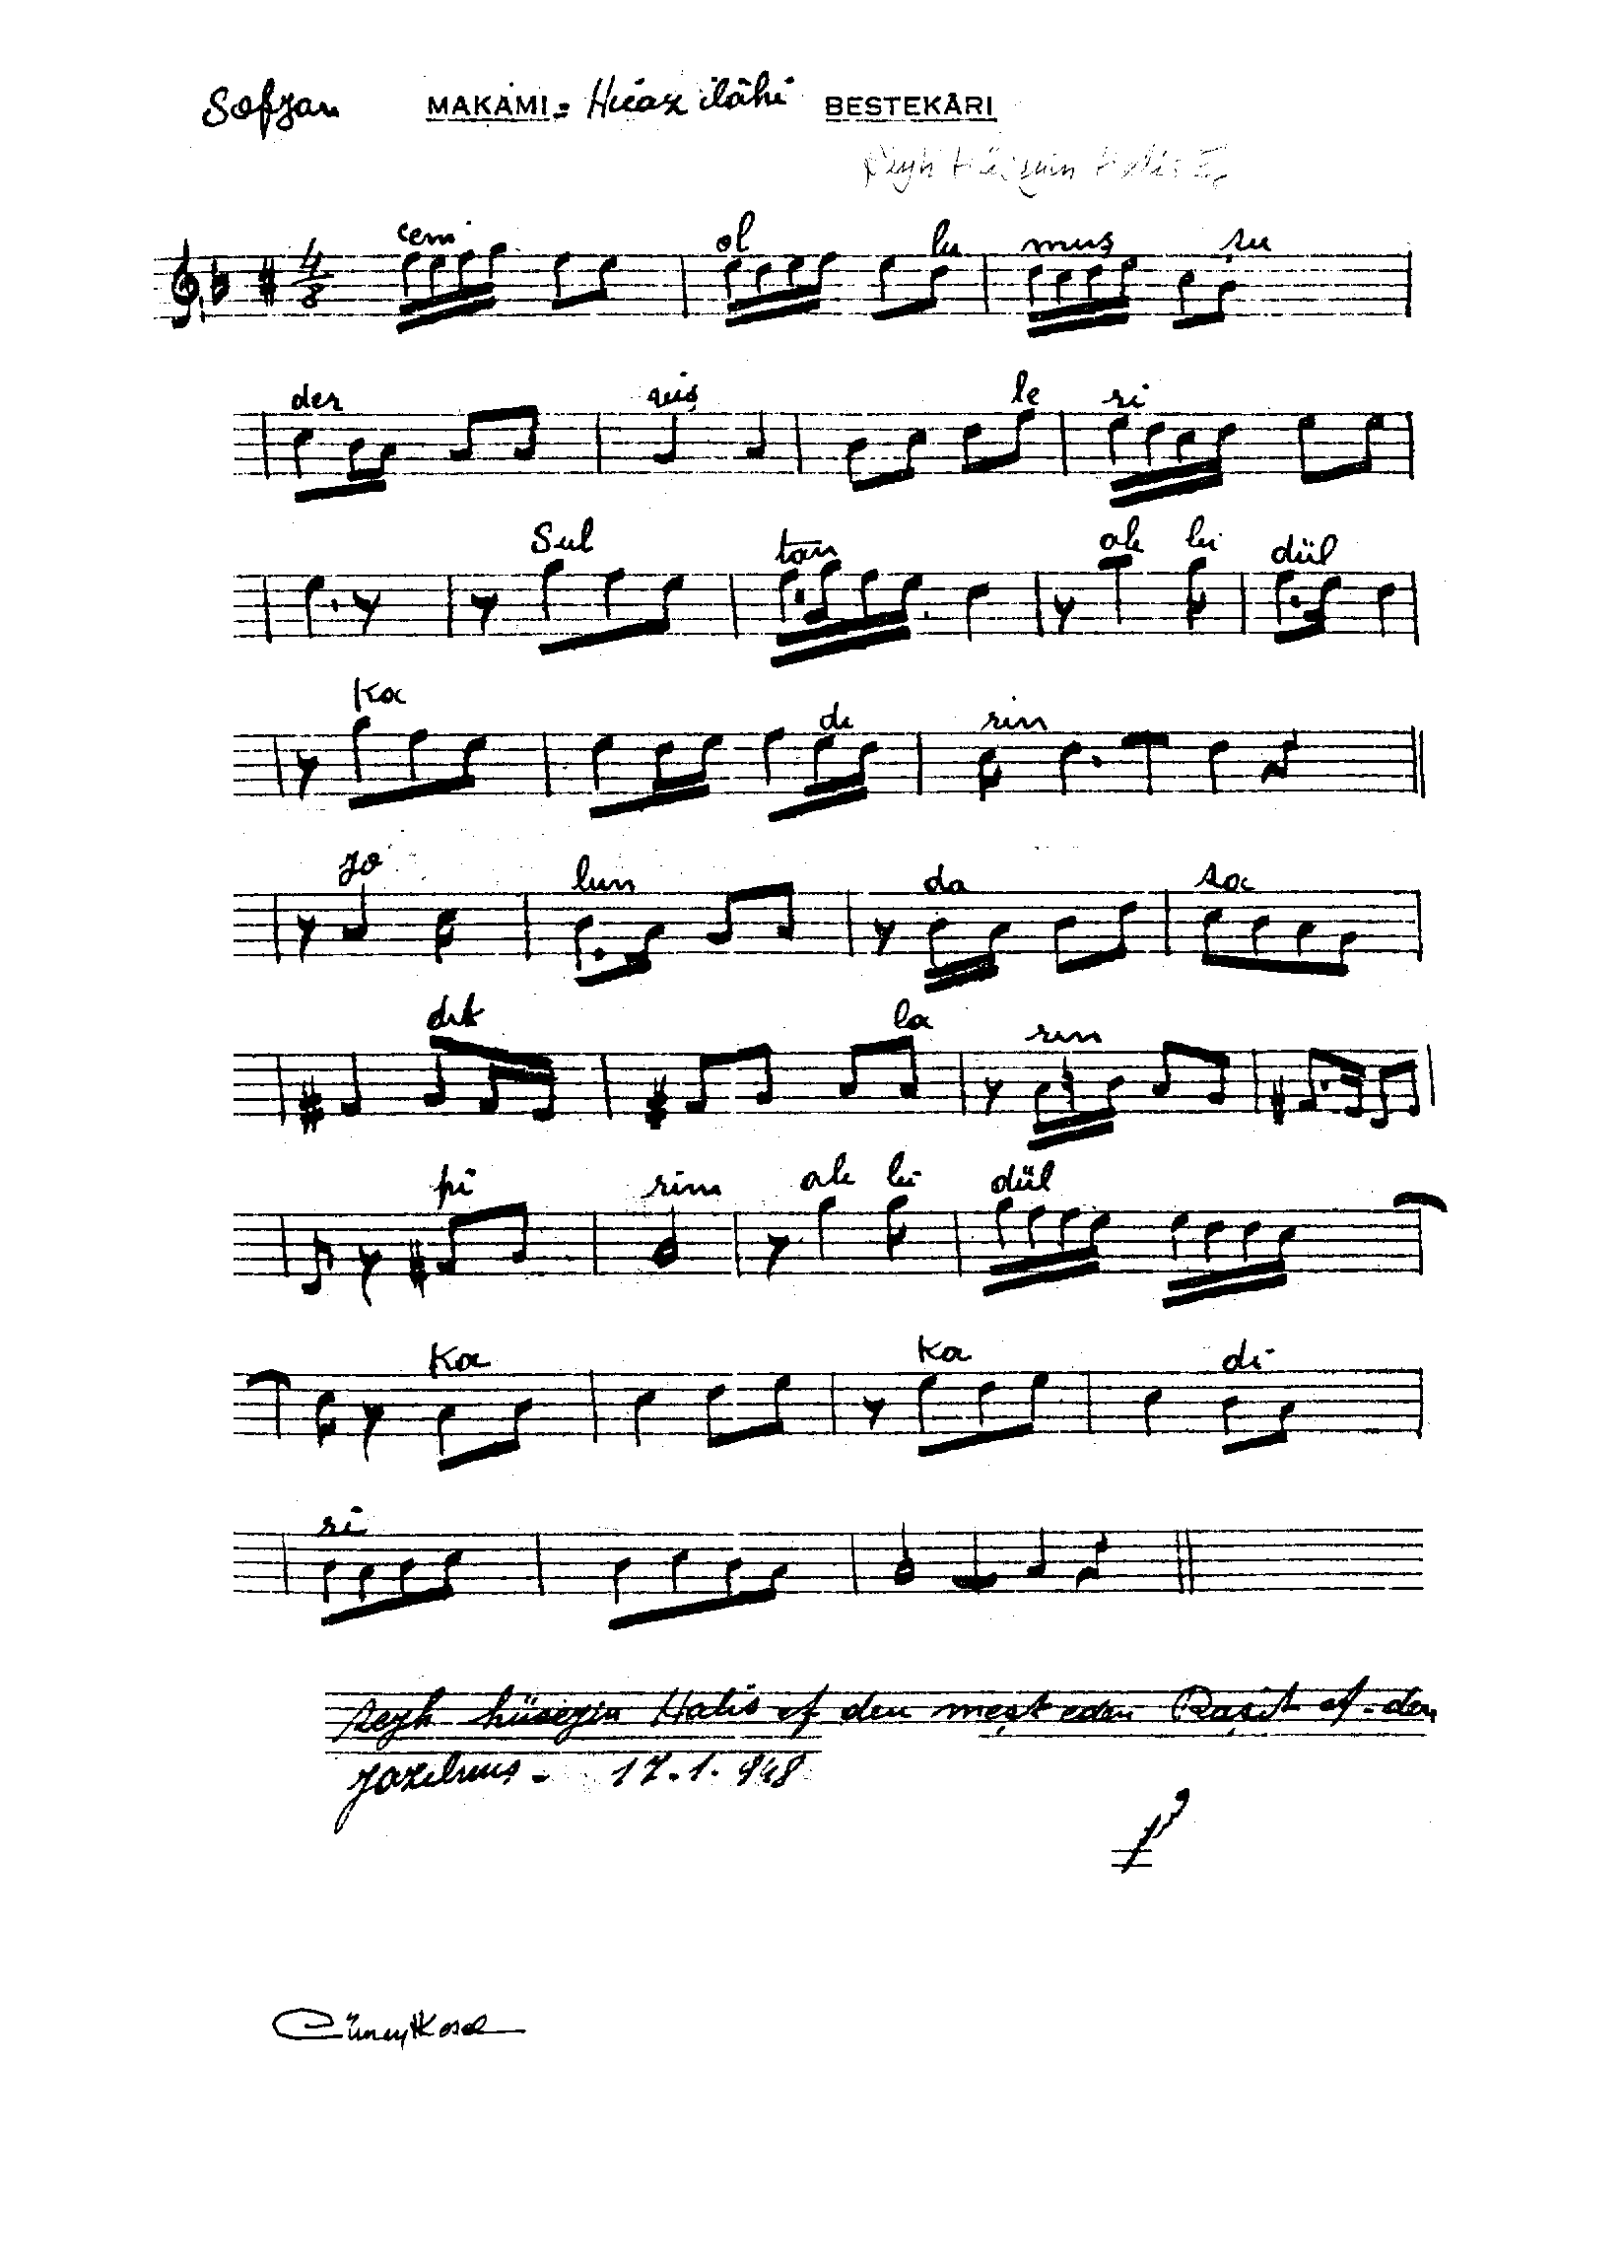 Sofyan MAKAMI = Hicaz ilâhi BESTEKÂRI
Şeyh Hüseyin Halis Ef
4/8
cem ol lu muş su
der viş le ri
Sul tan ab di dül
Ka di rin
yo lun da sa
dık la rın
pi rim ab di dül
Ka Ka di
ri
Şeyh hüseyin Halis ef den meşk eden Raşit ef-den
yazılmış - 17.1.948